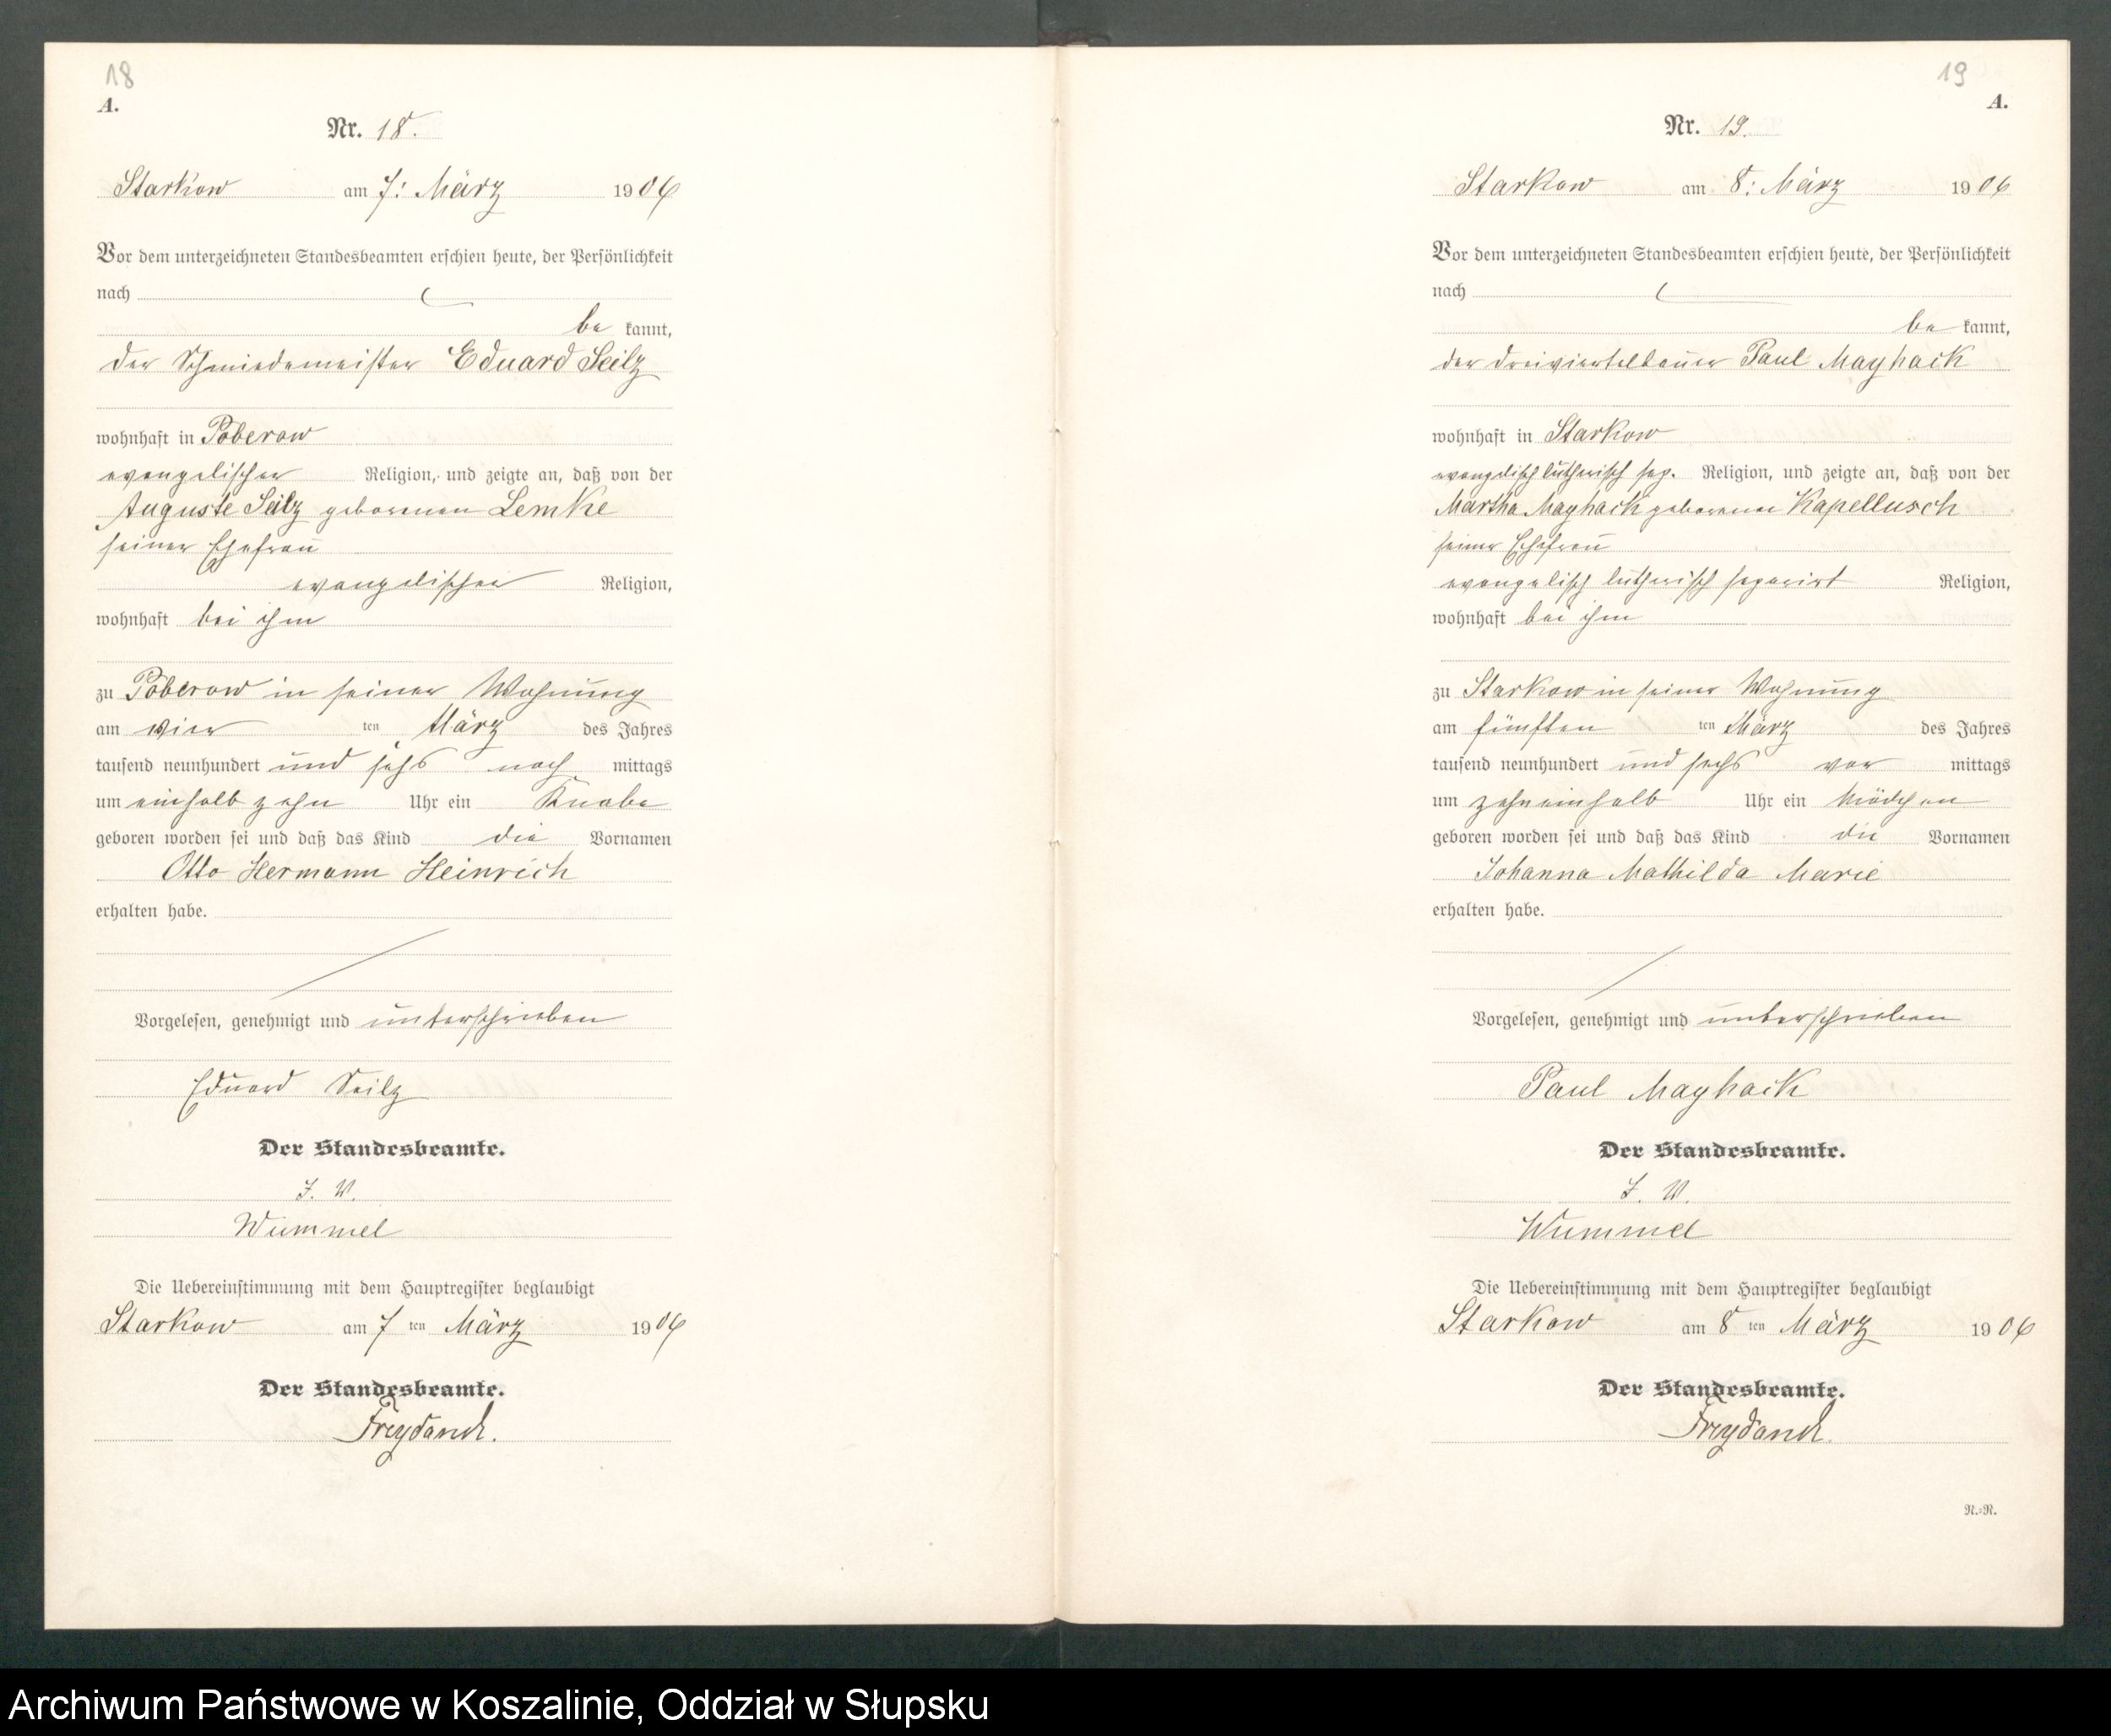 18
A.
Nr. 18.
Starkow am 7: März 1906
Vor dem unterzeichneten Standesbeamten erschien heute, der Persönlichkeit
nach
be kannt,
der Schmiedemeister Eduard Seilz
wohnhaft in Poberow
evangelischer Religion, und zeigte an, daß von der
Auguste Seilz geborenen Lemke
seiner Ehefrau
evangelischer Religion,
wohnhaft bei ihm
zu Poberow in seiner Wohnung
am vier ten März des Jahres
tausend neunhundert und sechs nach mittags
um einhalb zehn Uhr ein Knabe
geboren worden sei und daß das Kind die Vornamen
Otto Hermann Heinrich
erhalten habe.
Vorgelesen, genehmigt und unterschrieben
Eduard Seilz
Der Standesbeamte.
I. V.
Wummel
Die Uebereinstimmung mit dem Hauptregister beglaubigt
Starkow am 7 ten März 1906
Der Standesbeamte.
Freydanck.
19
A.
Nr. 19.
Starkow am 8: März 1906
Vor dem unterzeichneten Standesbeamten erschien heute, der Persönlichkeit
nach
be kannt,
der Dreiviertelbauer Paul Mayhack
wohnhaft in Starkow
evangelisch lutherisch sep. Religion, und zeigte an, daß von der
Martha Mayhack geborener Kapellusch
seiner Ehefrau
evangelisch lutherisch separirt Religion,
wohnhaft bei ihm
zu Starkow in seiner Wohnung
am fünften ten März des Jahres
tausend neunhundert und sechs vor mittags
um zehneinhalb Uhr ein Mädchen
geboren worden sei und daß das Kind die Vornamen
Johanna Mathilda Marie
erhalten habe.
Vorgelesen, genehmigt und unterschrieben
Paul Mayhack
Der Standesbeamte.
I. V.
Wummel
Die Uebereinstimmung mit dem Hauptregister beglaubigt
Starkow am 8 ten März 1906
Der Standesbeamte.
Freydanck.
R.=R.
Archiwum Państwowe w Koszalinie, Oddział w Słupsku